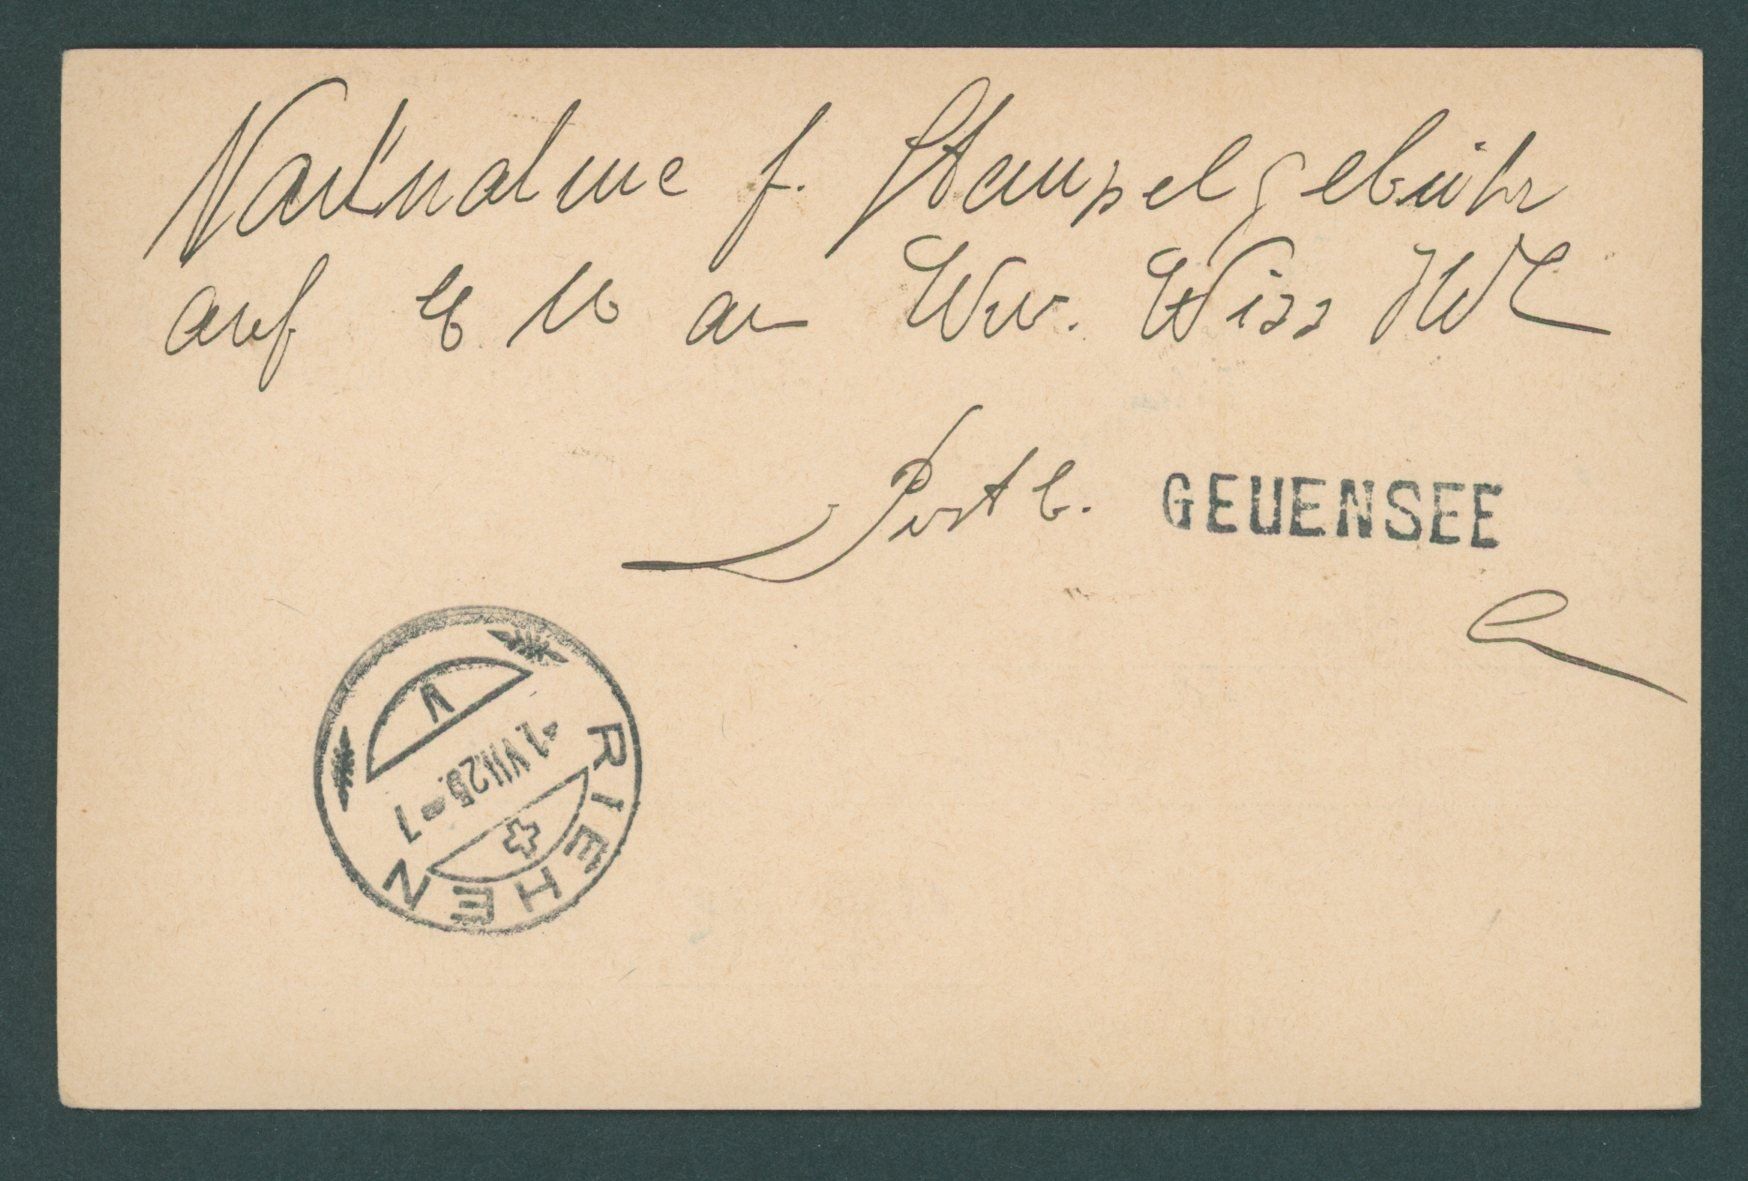 Nachnahme f. Stempelgebühr
auf an Ww. Wiss
Postb. GEUENSEE
RIEHEN
-1.VII.25.-7
V